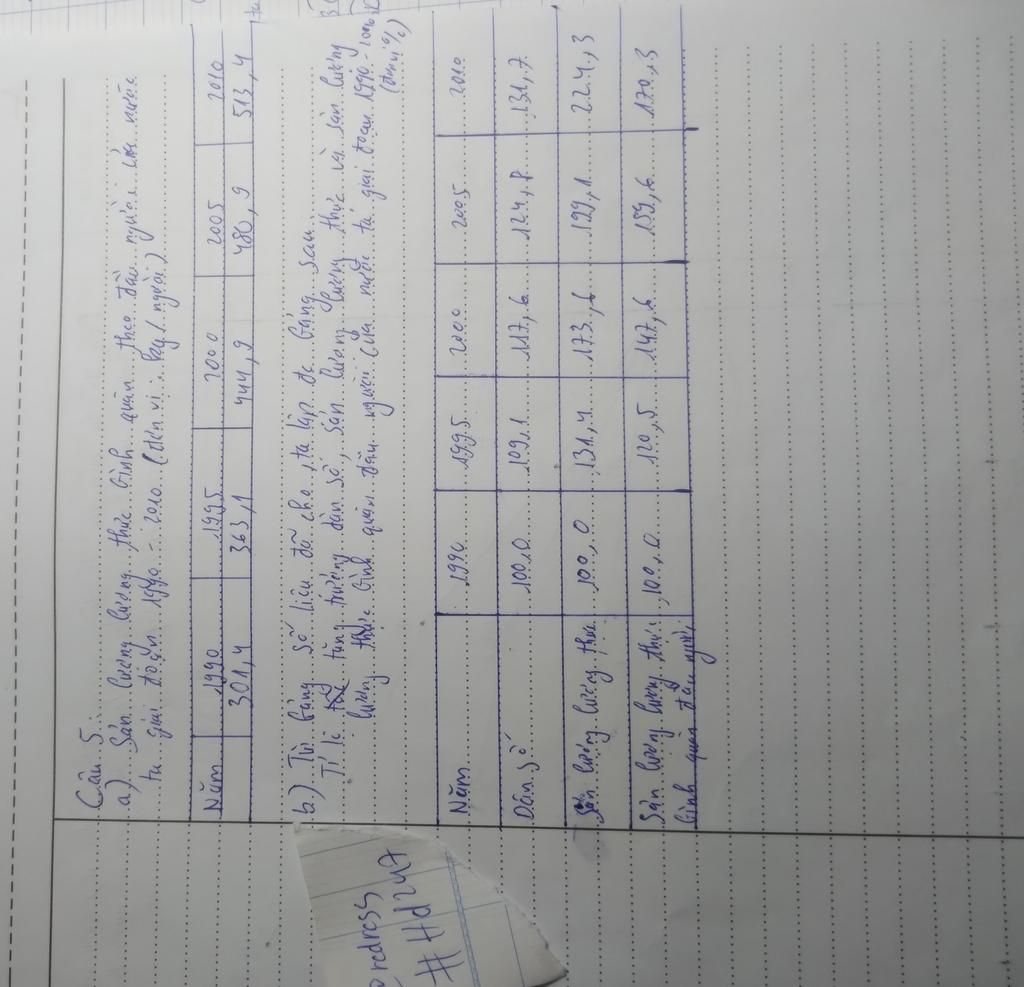 Câu 5:
a) Sản lượng lương thực bình quân theo đầu người của nước
ta giai đoạn 1990 - 2010 (đơn vị: kg/người)
Năm 1990 1995 2000 2005 2010
301,4 363,1 444,9 480,9 513,4
b.) Từ bảng số liệu đã cho, ta lập đc bảng sau
Tỉ lệ tăng trưởng dân số, sản lượng lương thực và sản lượng
lương thực bình quân đầu người của nước ta giai đoạn 1990-2010
(đơn vị %)
Năm 1990 1995 2000 2005 2010
Dân số 100,0 109,1 117,6 124,8 131,7
Sản lượng lương thực 100,0 131,4 173,6 199,1 224,3
Sản lượng lương thực 100,0 120,5 147,6 159,6 170,3
bình quân đầu người
redress
# Hd247